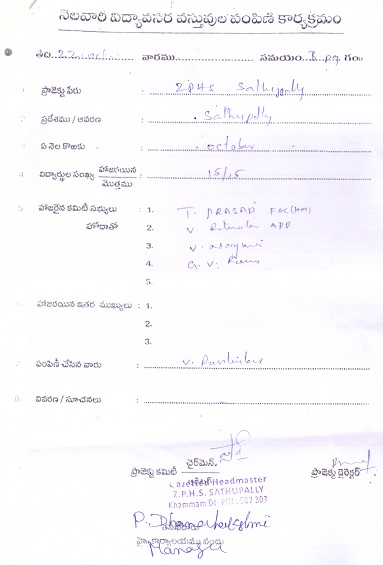 నెలవారి విద్యావసర వస్తువుల పంపిణి కార్యక్రమం
తేది 22 వారము సమయం 3 గం॥
1 ప్రాజెక్టు పేరు : ZPHS Sathupally
2 ప్రదేశము / ఆవరణ : Sathupally
3 ఏ నెల కొఱకు : october
4 విద్యార్థుల సంఖ్య హాజరయిన / మొత్తము : 15/15
5 హాజరైన కమిటి సభ్యులు : 1. T. PRASAD FAC(HM)
హోదాతో 2. V.
3. V.
4. G. V.
5.
6 హాజరయిన ఇతర ముఖ్యులు : 1.
2.
3.
7 పంపిణీ చేసిన వారు : V.
8 వివరణ / సూచనలు :
చైర్మెన్,
ప్రాజెక్టు కమిటి ప్రాజెక్టు డైరెక్టర్
Gazetted Headmaster
Z.P.H.S. SATHUPALLY
Khammam Dt. PIN: 507 303
P. Dhanalakshmi
Manager